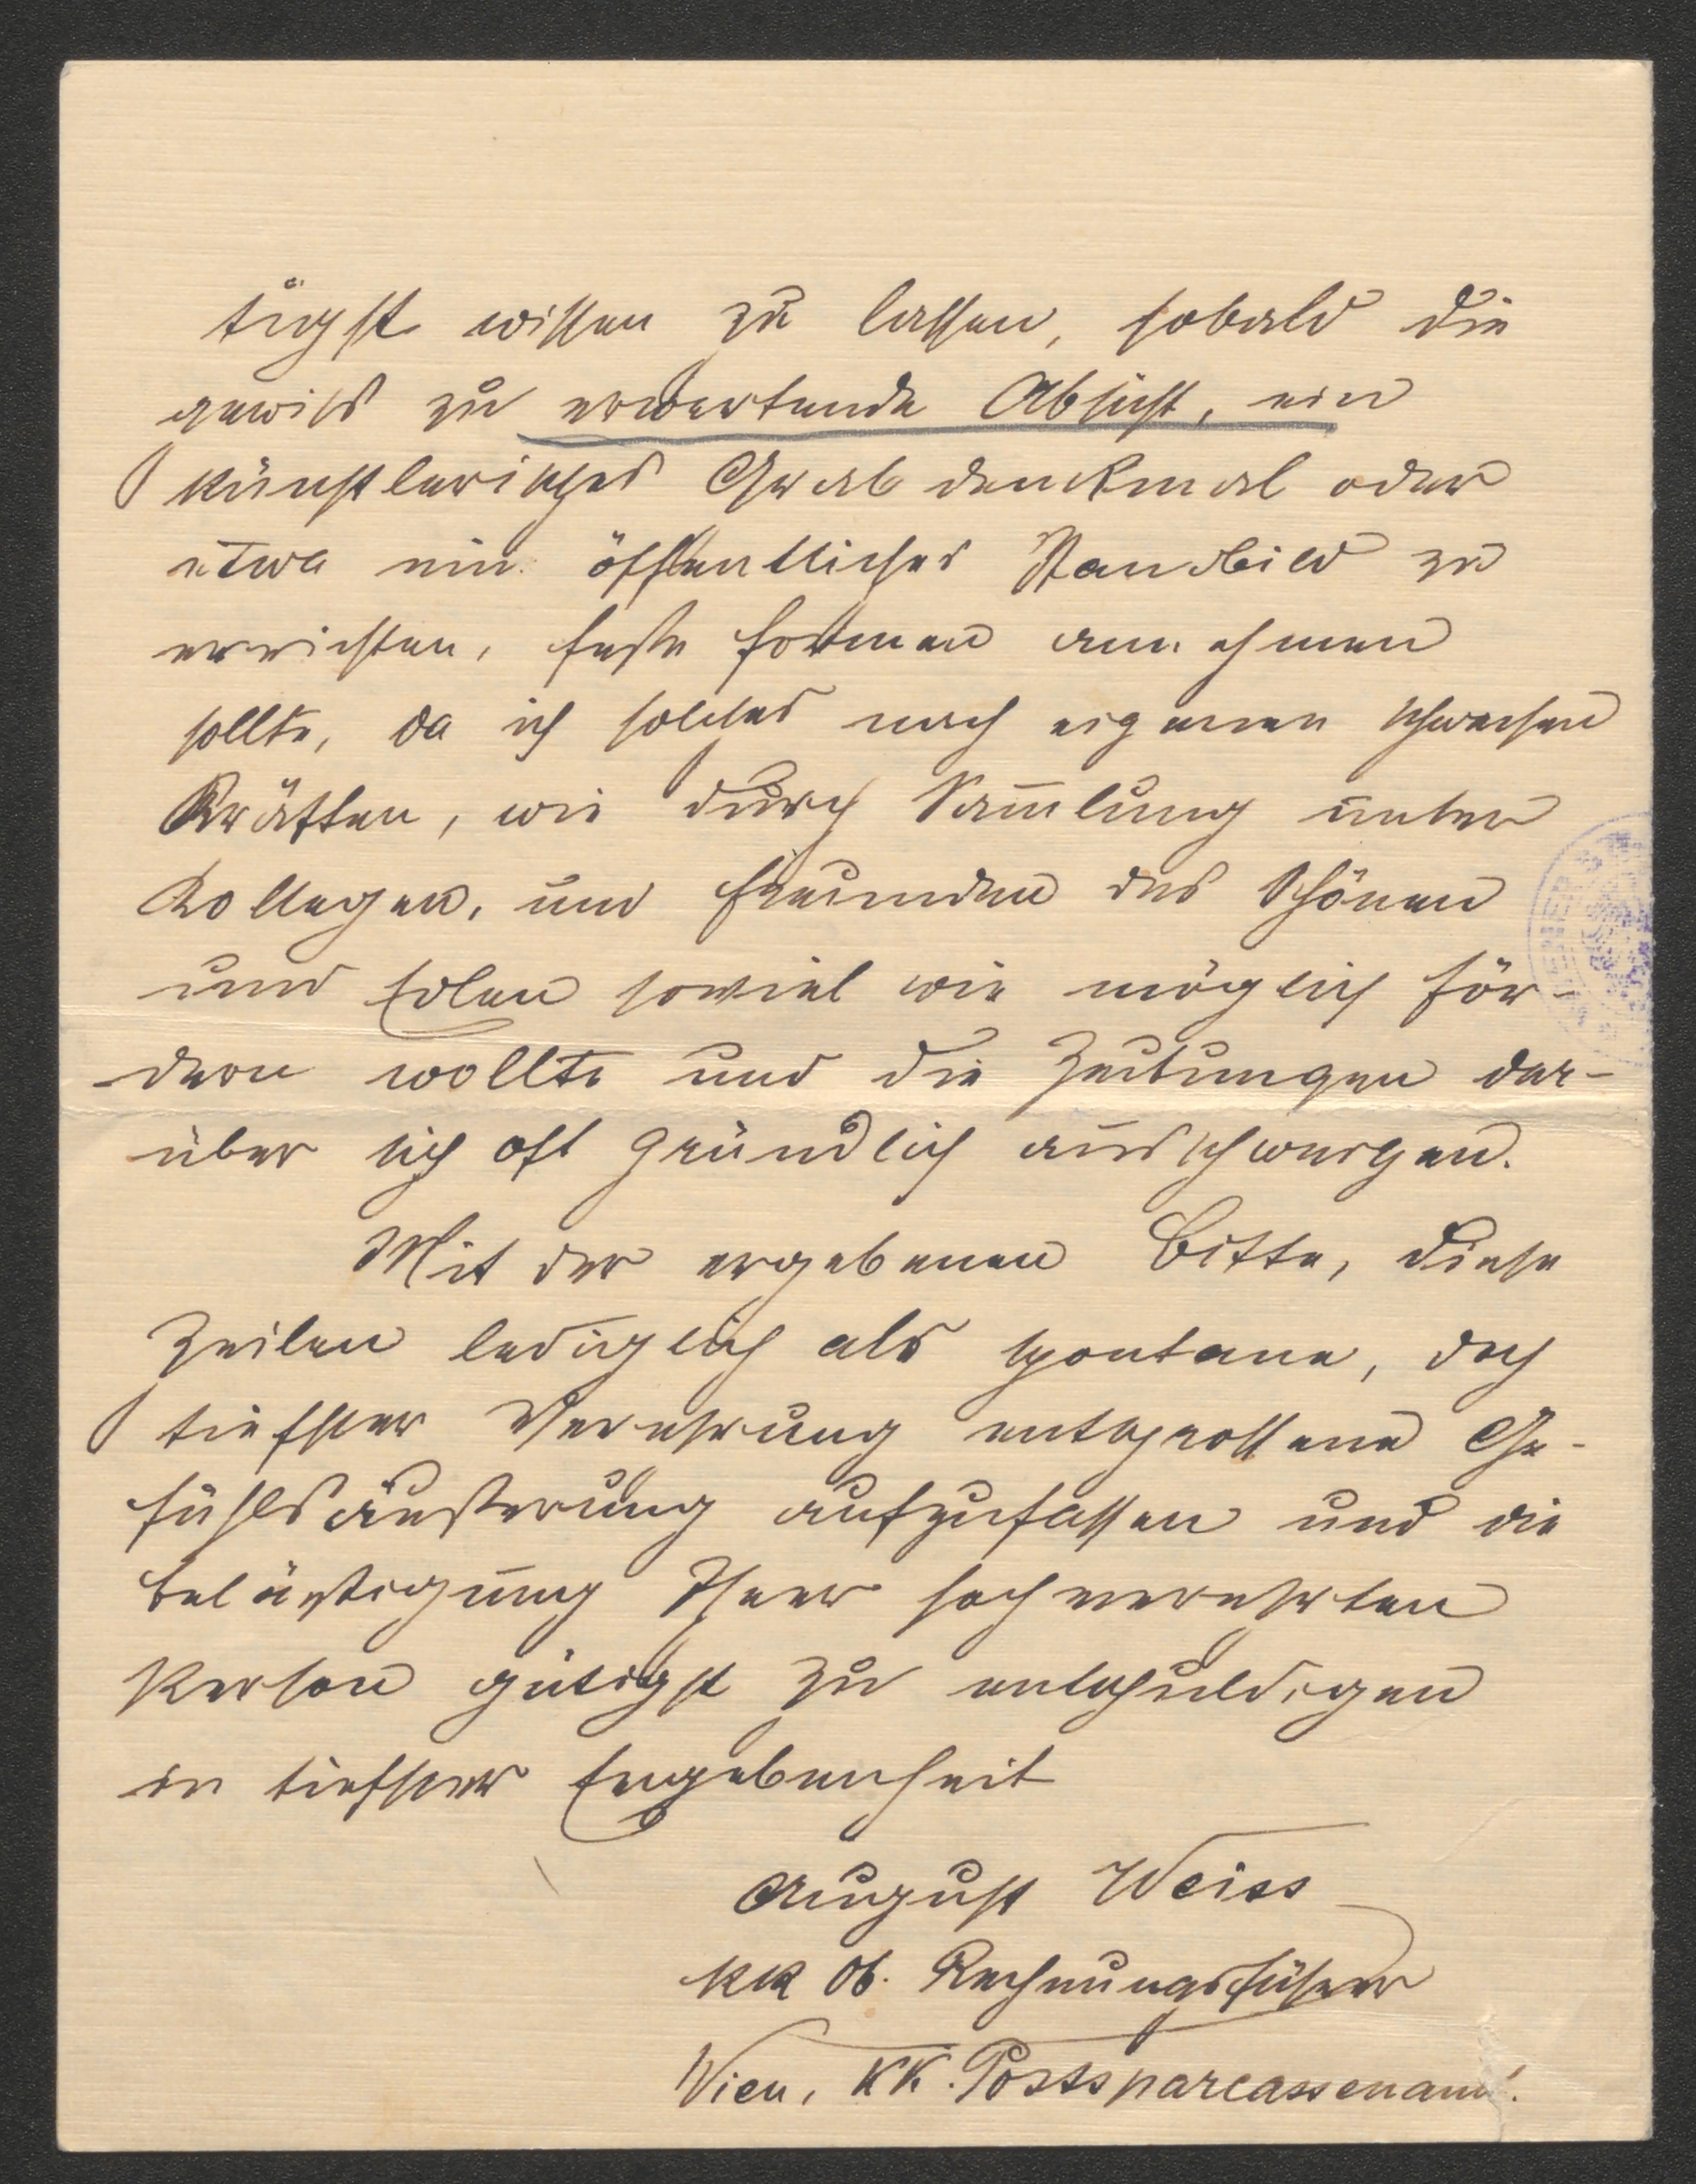 tigst wissen zu lassen, sobald die
gewiss zu erwartende Absicht, ein
künstlerisches Grabdenkmal oder
etwa ein öffentliches Standbild zu
errichten, feste Formen annehmen
sollte, da ich solches nach eigenen schwachen
Kräften, wie durch Sam̅lung unter
Kollegen, und Freunden des Schönen
und Edlen soviel wie möglich för-
dern wollte und die Zeitungen dar-
über sich oft gründlich ausschweigen.
Mit der ergebenen Bitte, diese
Zeilen lediglich als spontane, doch
tiefster Verehrung entsprossene Ge-
fühlsäußerung aufzufassen und die
Belästigung Ihrer hochverehrten
Person gütigst zu entschuldigen
in tiefster Ergebenheit
August Weiss
KK Ob. Rechnungsführer
Wien, KK. Postsparcassenamt.